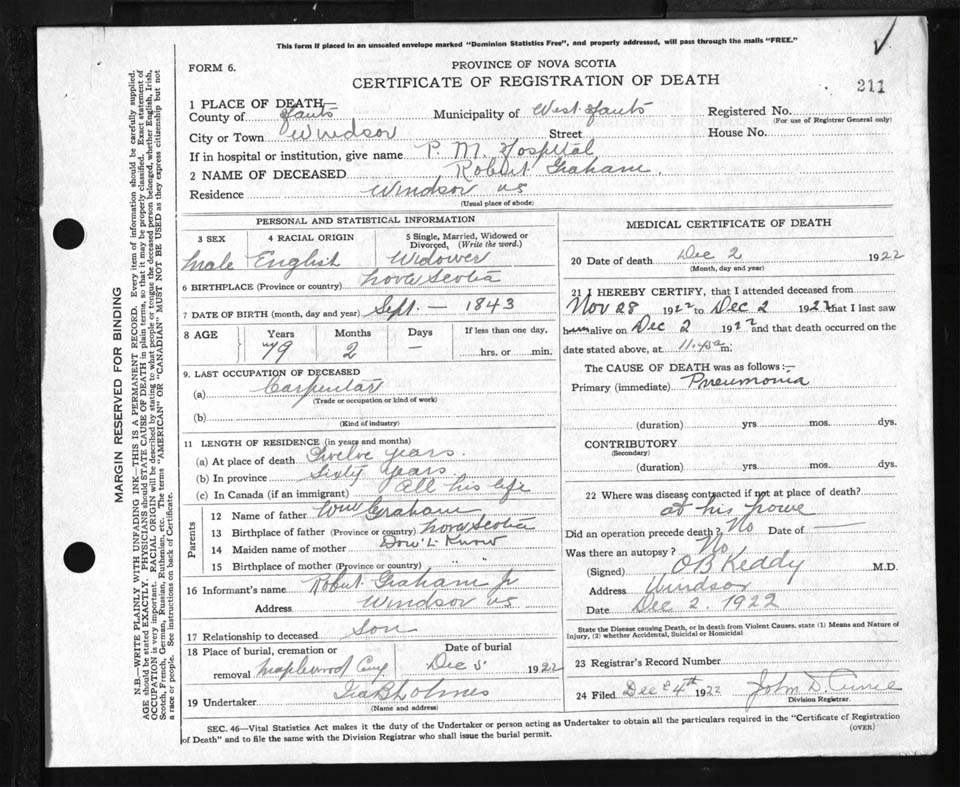 This form if placed in an unsealed envelope marked "Dominion Statistics Free", and properly addressed, will pass through the mails "FREE."
FORM 6.
PROVINCE OF NOVA SCOTIA
CERTIFICATE OF REGISTRATION OF DEATH
211
1 PLACE OF DEATH—
County of Hants Municipality of West Hants Registered No.
(For use of Registrar General only)
City or Town Windsor Street House No.
If in hospital or institution, give name P. M. Hospital
2 NAME OF DECEASED Robert Graham
Residence Windsor NS
(Usual place of abode)
PERSONAL AND STATISTICAL INFORMATION
3 SEX 4 RACIAL ORIGIN 5 Single, Married, Widowed or Divorced, (Write the word.)
Male English Widower
6 BIRTHPLACE (Province or country) Nova Scotia
7 DATE OF BIRTH (month, day and year) Sept. — 1843
8 AGE Years Months Days If less than one day,
79 2 — hrs. or min.
9. LAST OCCUPATION OF DECEASED
(a) Carpenter
(Trade or occupation or kind of work)
(b)
(Kind of industry)
11 LENGTH OF RESIDENCE (in years and months)
(a) At place of death Twelve years.
(b) In province Sixty years
(c) In Canada (if an immigrant) all his life
Parents
12 Name of father Wm Graham
13 Birthplace of father (Province or country) Nova Scotia
14 Maiden name of mother Don't Know
15 Birthplace of mother (Province or country) "
16 Informant's name Robert Graham Jr
Address Windsor NS
17 Relationship to deceased Son
18 Place of burial, cremation or removal Maplewood Cem
Date of burial
Dec 5 1922
19 Undertaker Ira B Holmes
(Name and address)
MEDICAL CERTIFICATE OF DEATH
20 Date of death Dec 2 1922
(Month, day and year)
21 I HEREBY CERTIFY, that I attended deceased from
Nov 28 1922 to Dec 2 1922 that I last saw
him alive on Dec 2 1922 and that death occurred on the
date stated above, at 11.45a m.
The CAUSE OF DEATH was as follows:—
Primary (immediate) Pneumonia
(duration) yrs. mos. dys.
CONTRIBUTORY
(Secondary)
(duration) yrs. mos. dys.
22 Where was disease contracted if not at place of death?
at his home
Did an operation precede death? No Date of
Was there an autopsy? No
(Signed) O B Keddy M.D.
Address Windsor
Date Dec 2. 1922
State the Disease causing Death, or in death from Violent Causes, state (1) Means and Nature of
Injury, (2) whether Accidental, Suicidal or Homicidal
23 Registrar's Record Number
24 Filed Dec 4th 1922 John D
Division Registrar.
SEC. 46—Vital Statistics Act makes it the duty of the Undertaker or person acting as Undertaker to obtain all the particulars required in the "Certificate of Registration
of Death" and to file the same with the Division Registrar who shall issue the burial permit.
(OVER)
MARGIN RESERVED FOR BINDING
N.B.—WRITE PLAINLY WITH UNFADING INK—THIS IS A PERMANENT RECORD. Every item of information should be carefully supplied.
AGE should be stated EXACTLY. PHYSICIANS should STATE CAUSE OF DEATH in plain terms, so that it may be properly classified. Exact statement of
OCCUPATION is very important. RACIAL ORIGIN will be described by stating to what people or tongue the deceased person belonged, whether English, Irish,
Scotch, French, German, Russian, Ruthenian, etc. The terms "AMERICAN" OR "CANADIAN" MUST NOT BE USED as they express citizenship but not
a race or people. See instructions on back of Certificate.